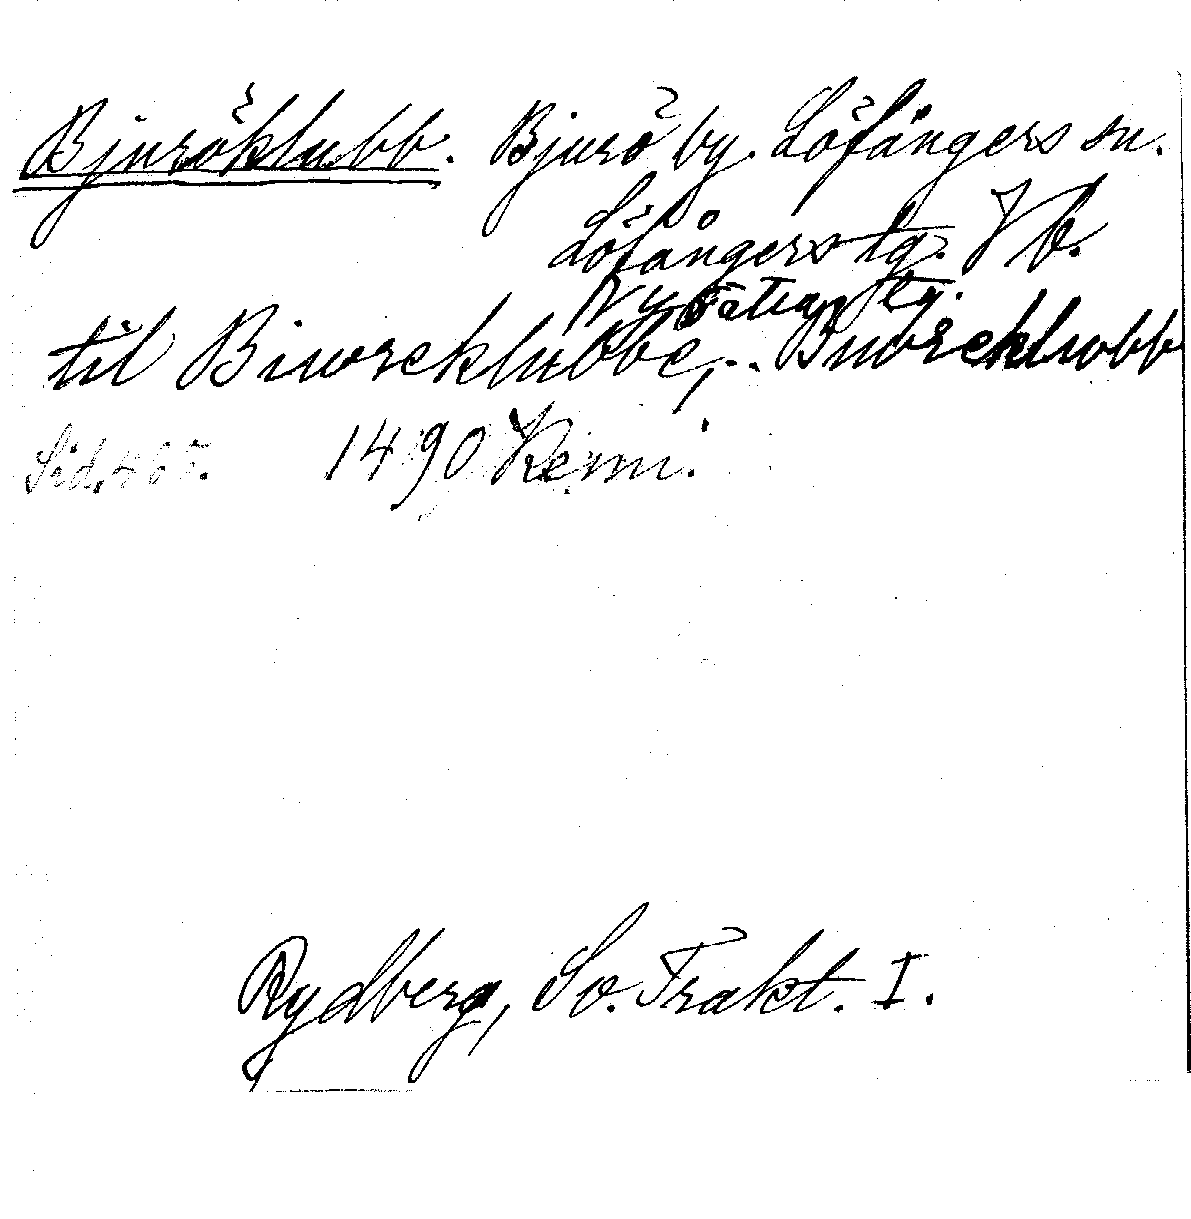 Bjuröklubb. Bjurö by. Löfångers sn.
Löfångers tg. Vb.
Nysätra tg.
til Biworeklubbe, .. Buoreklubb
Sid. 465. 1490 Kemi.
Rydberg, Sv. Trakt. I.